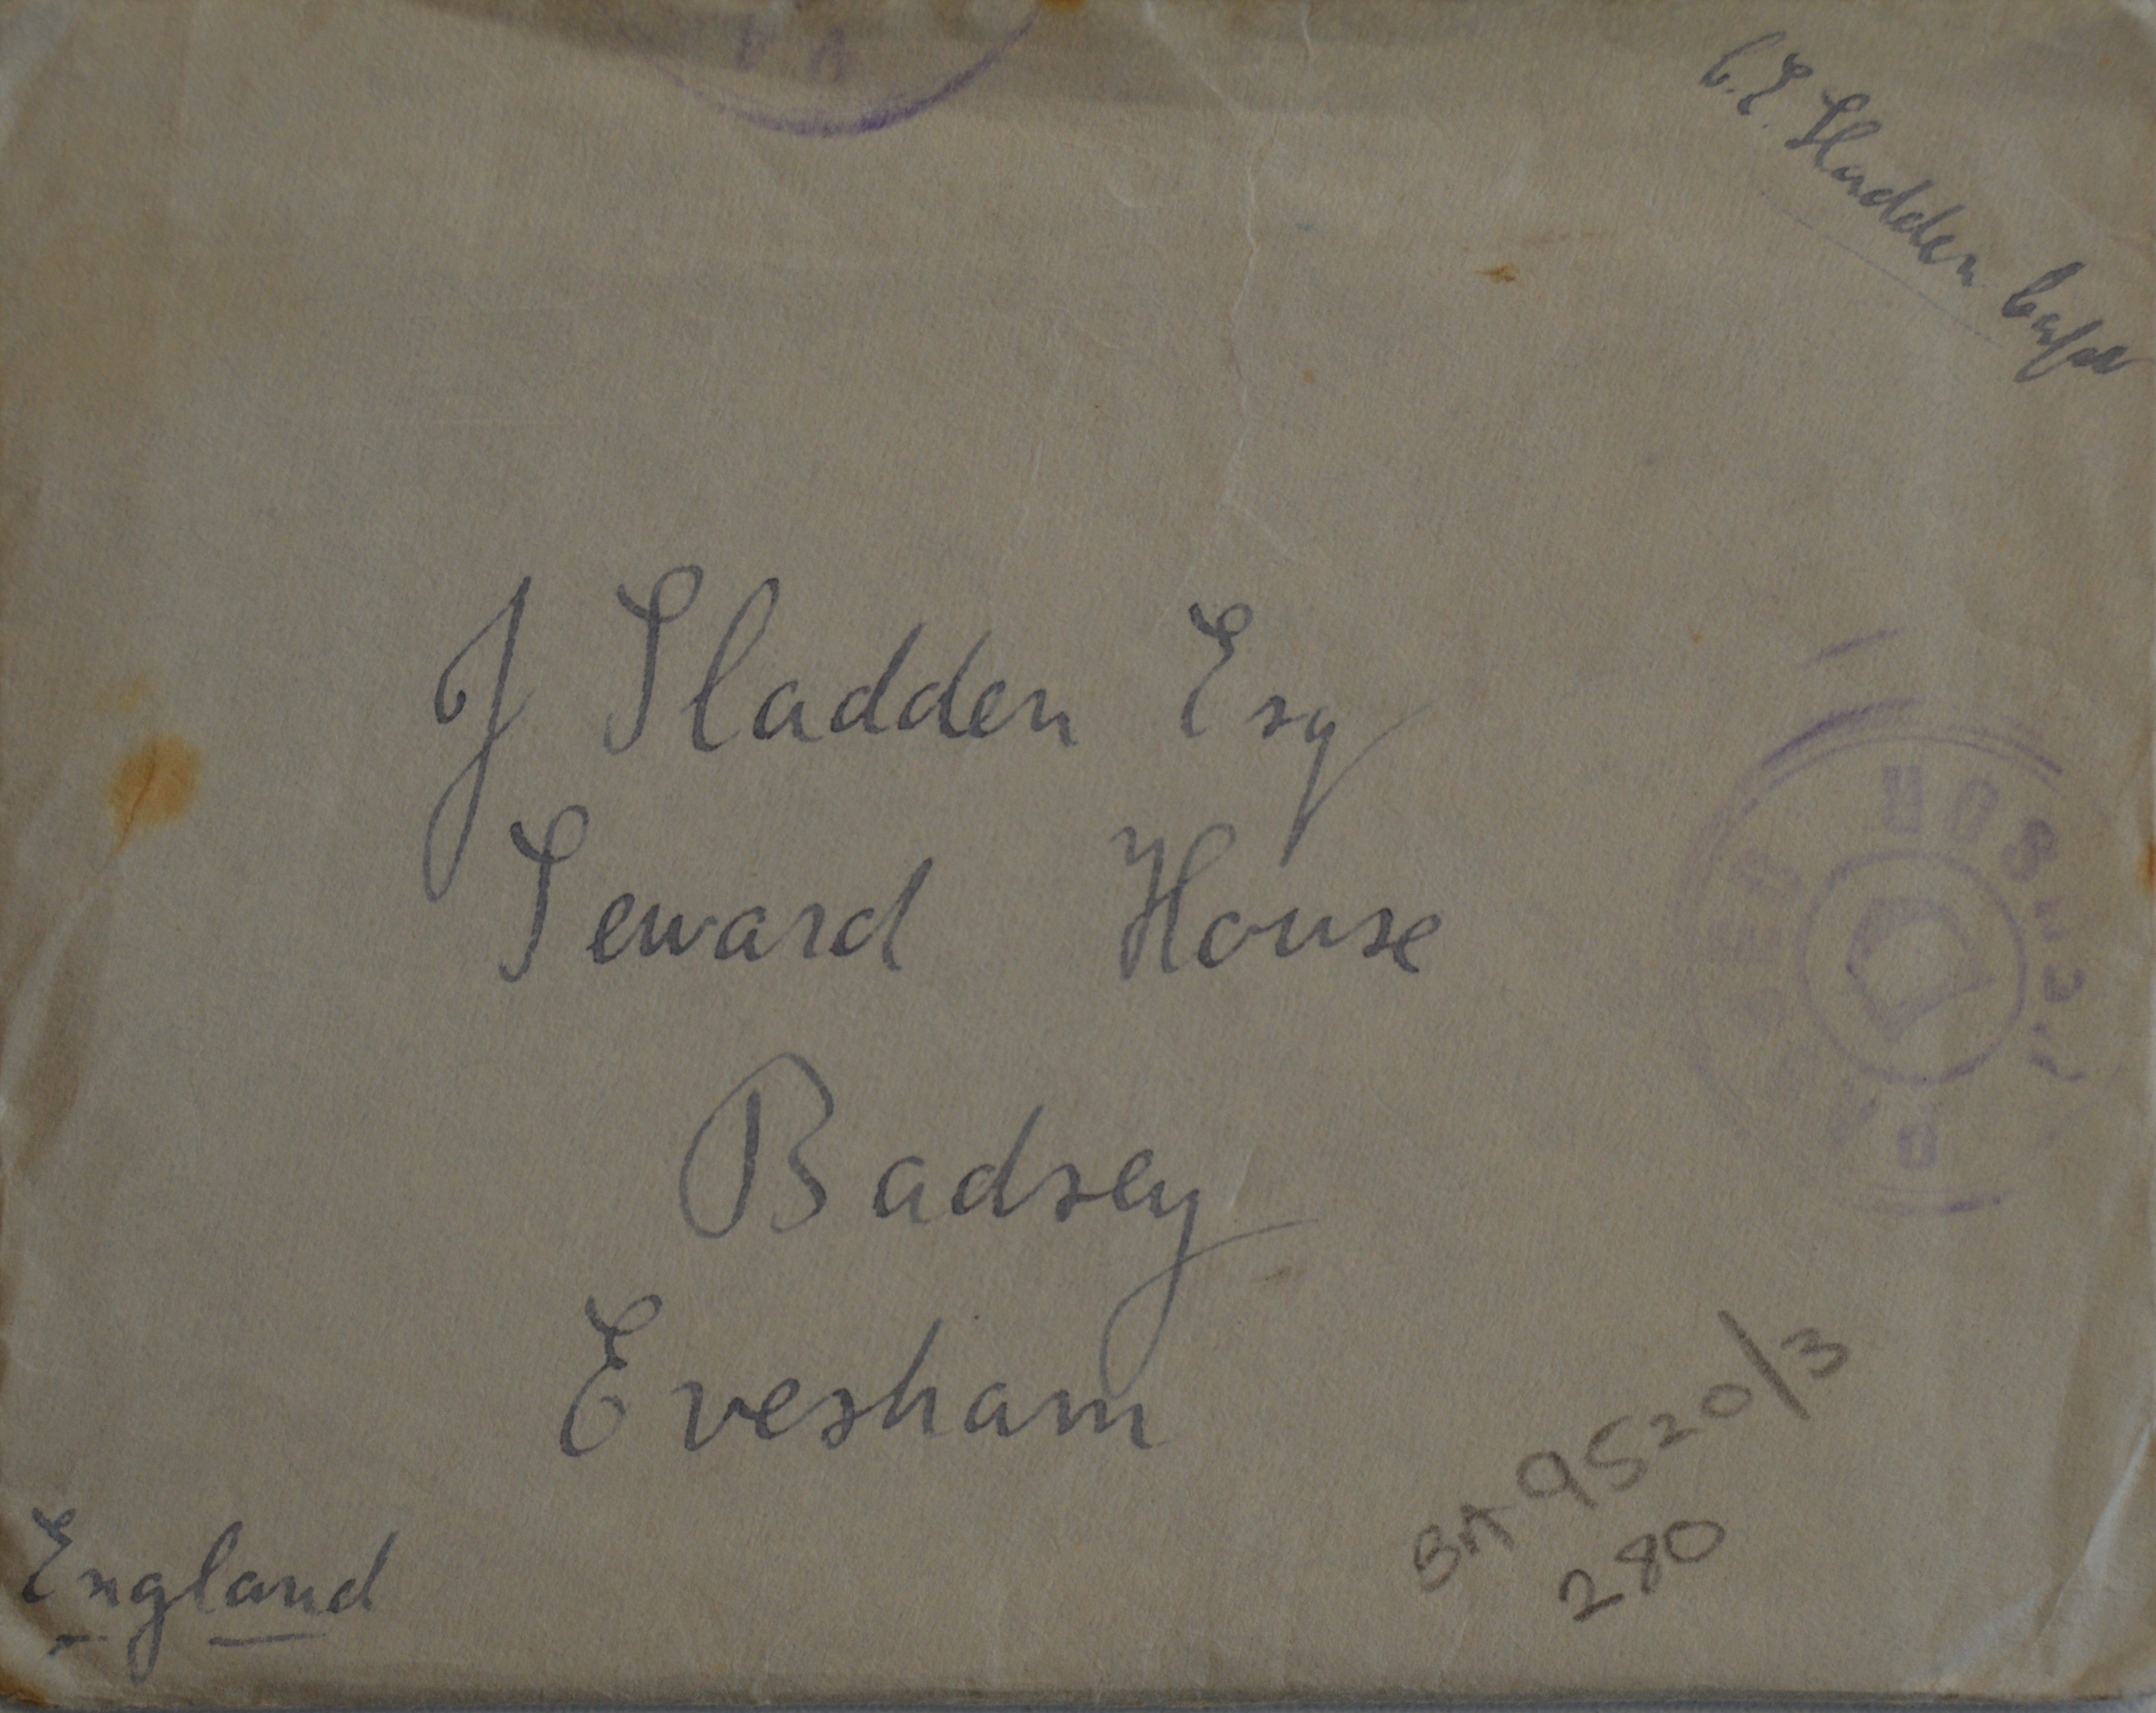 C. E. Sladden Capt
J Sladden Esq
Seward House
Badsey
Evesham
England
BA 9520/3
280
PASSED